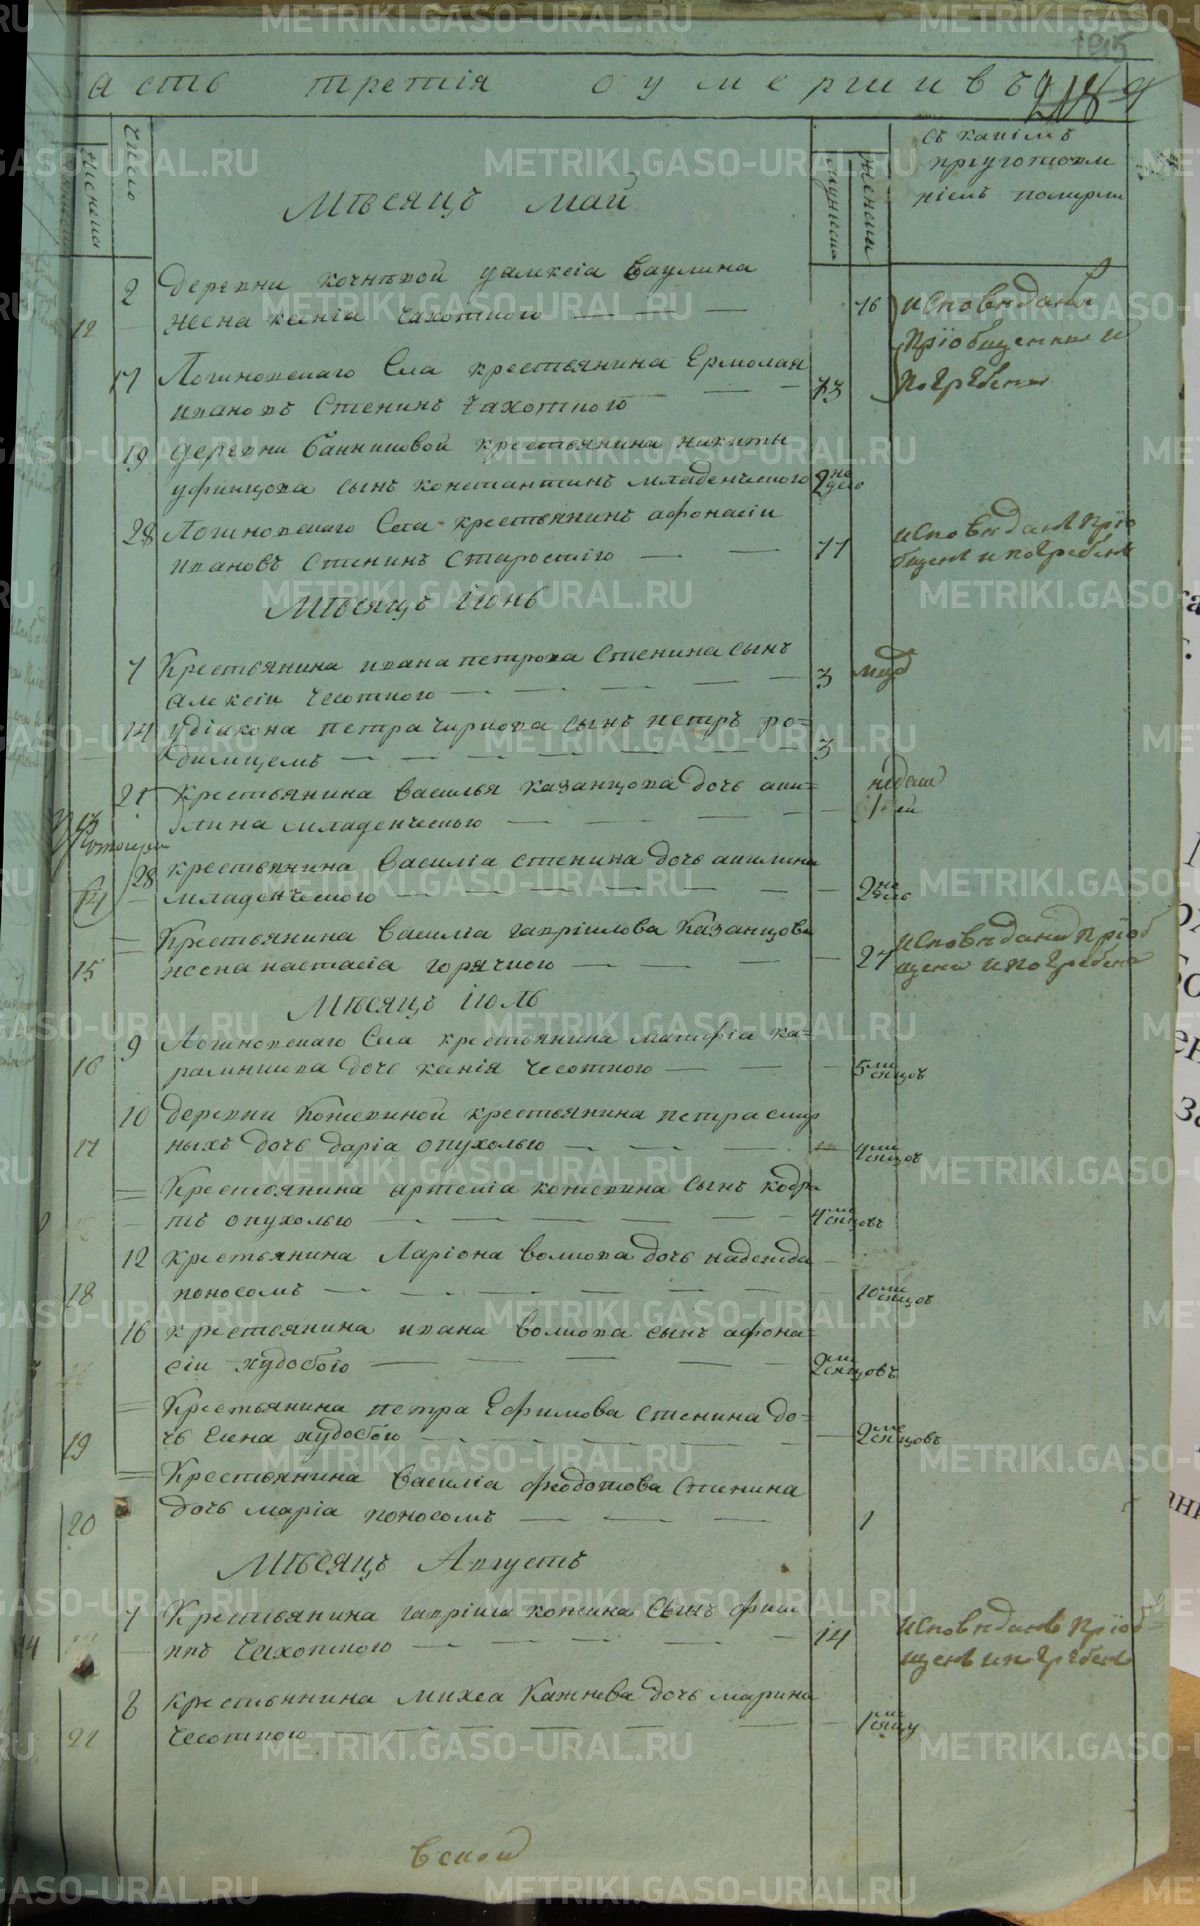 195
асть третія о умершихъ
218
Число
женска
мужеска
женска
съ какимъ
приуготовле
ніемъ померли
Мѣсяцъ май
2 Деревни кочнѣвой
12 жена ксенія чахотного 76 исповѣдани
пріобщенны и
17 Логиновскаго Села крестьянина Ермолая
ивановъ Стенинъ чахотного 73 погребены
19 деревни крестьянина никиты
уфинцова сынъ константинъ младенческого 2 не
28 Логиновскаго Села крестьянинъ афонасіи
ивановъ Стенинъ Старостію 77 исповѣданъ пріо
бщенъ и погребенъ
Мѣсяцъ іюнь
7 Крестьянина ивана петрова Стенина сынъ
алексіи чесотного 3
14 удіакона петра сынъ петръ ро=
димцемъ 3
21 Крестьянина василья казанцова дочь аки=
лина младенческого недѣли
28 крестьянина Василіа стенина дочь акилина
14 младенческого 2 не
Крестьянина Василіа гавріилова Казанцова
15 жена настасіа горячкою 27 исповѣдана пріоб
щена и погребена
Мѣсяцъ іюль
9 Логиновскаго Села крестьянина матфіа ка=
16 дочь ксенія чесотного 5 ме
сяцовъ
10 деревни Кожевиной крестьянина петра смир
17 ныхъ дочь даріа опухолью 4 ме
сяцовъ
Крестьянина артеміа кожевина сынъ кодра
тъ опухолью 4 ме
сяцовъ
12 крестьянина Ларіона волкова дочь надежда
18 поносомъ 10 ме
сяцовъ
16 крестьянина ивана волкова сынъ афона=
сіи худобою 2 ме
сяцовъ
Крестьянина петра Ефимова стенина до=
19 чь Елена худобою 2 ме
сяцовъ
Крестьянина Василіа Феодотова Стенина
20 дочь маріа поносомъ 1
Мѣсяцъ Августъ
7 Крестьянина гавріила кожина Сынъ фили
ппъ чахотного 14 исповѣданъ пріоб=
щенъ и погребенъ
8 крестьянина михеа Кажнева дочь марина
22 чесотного 1 ме
сяцу